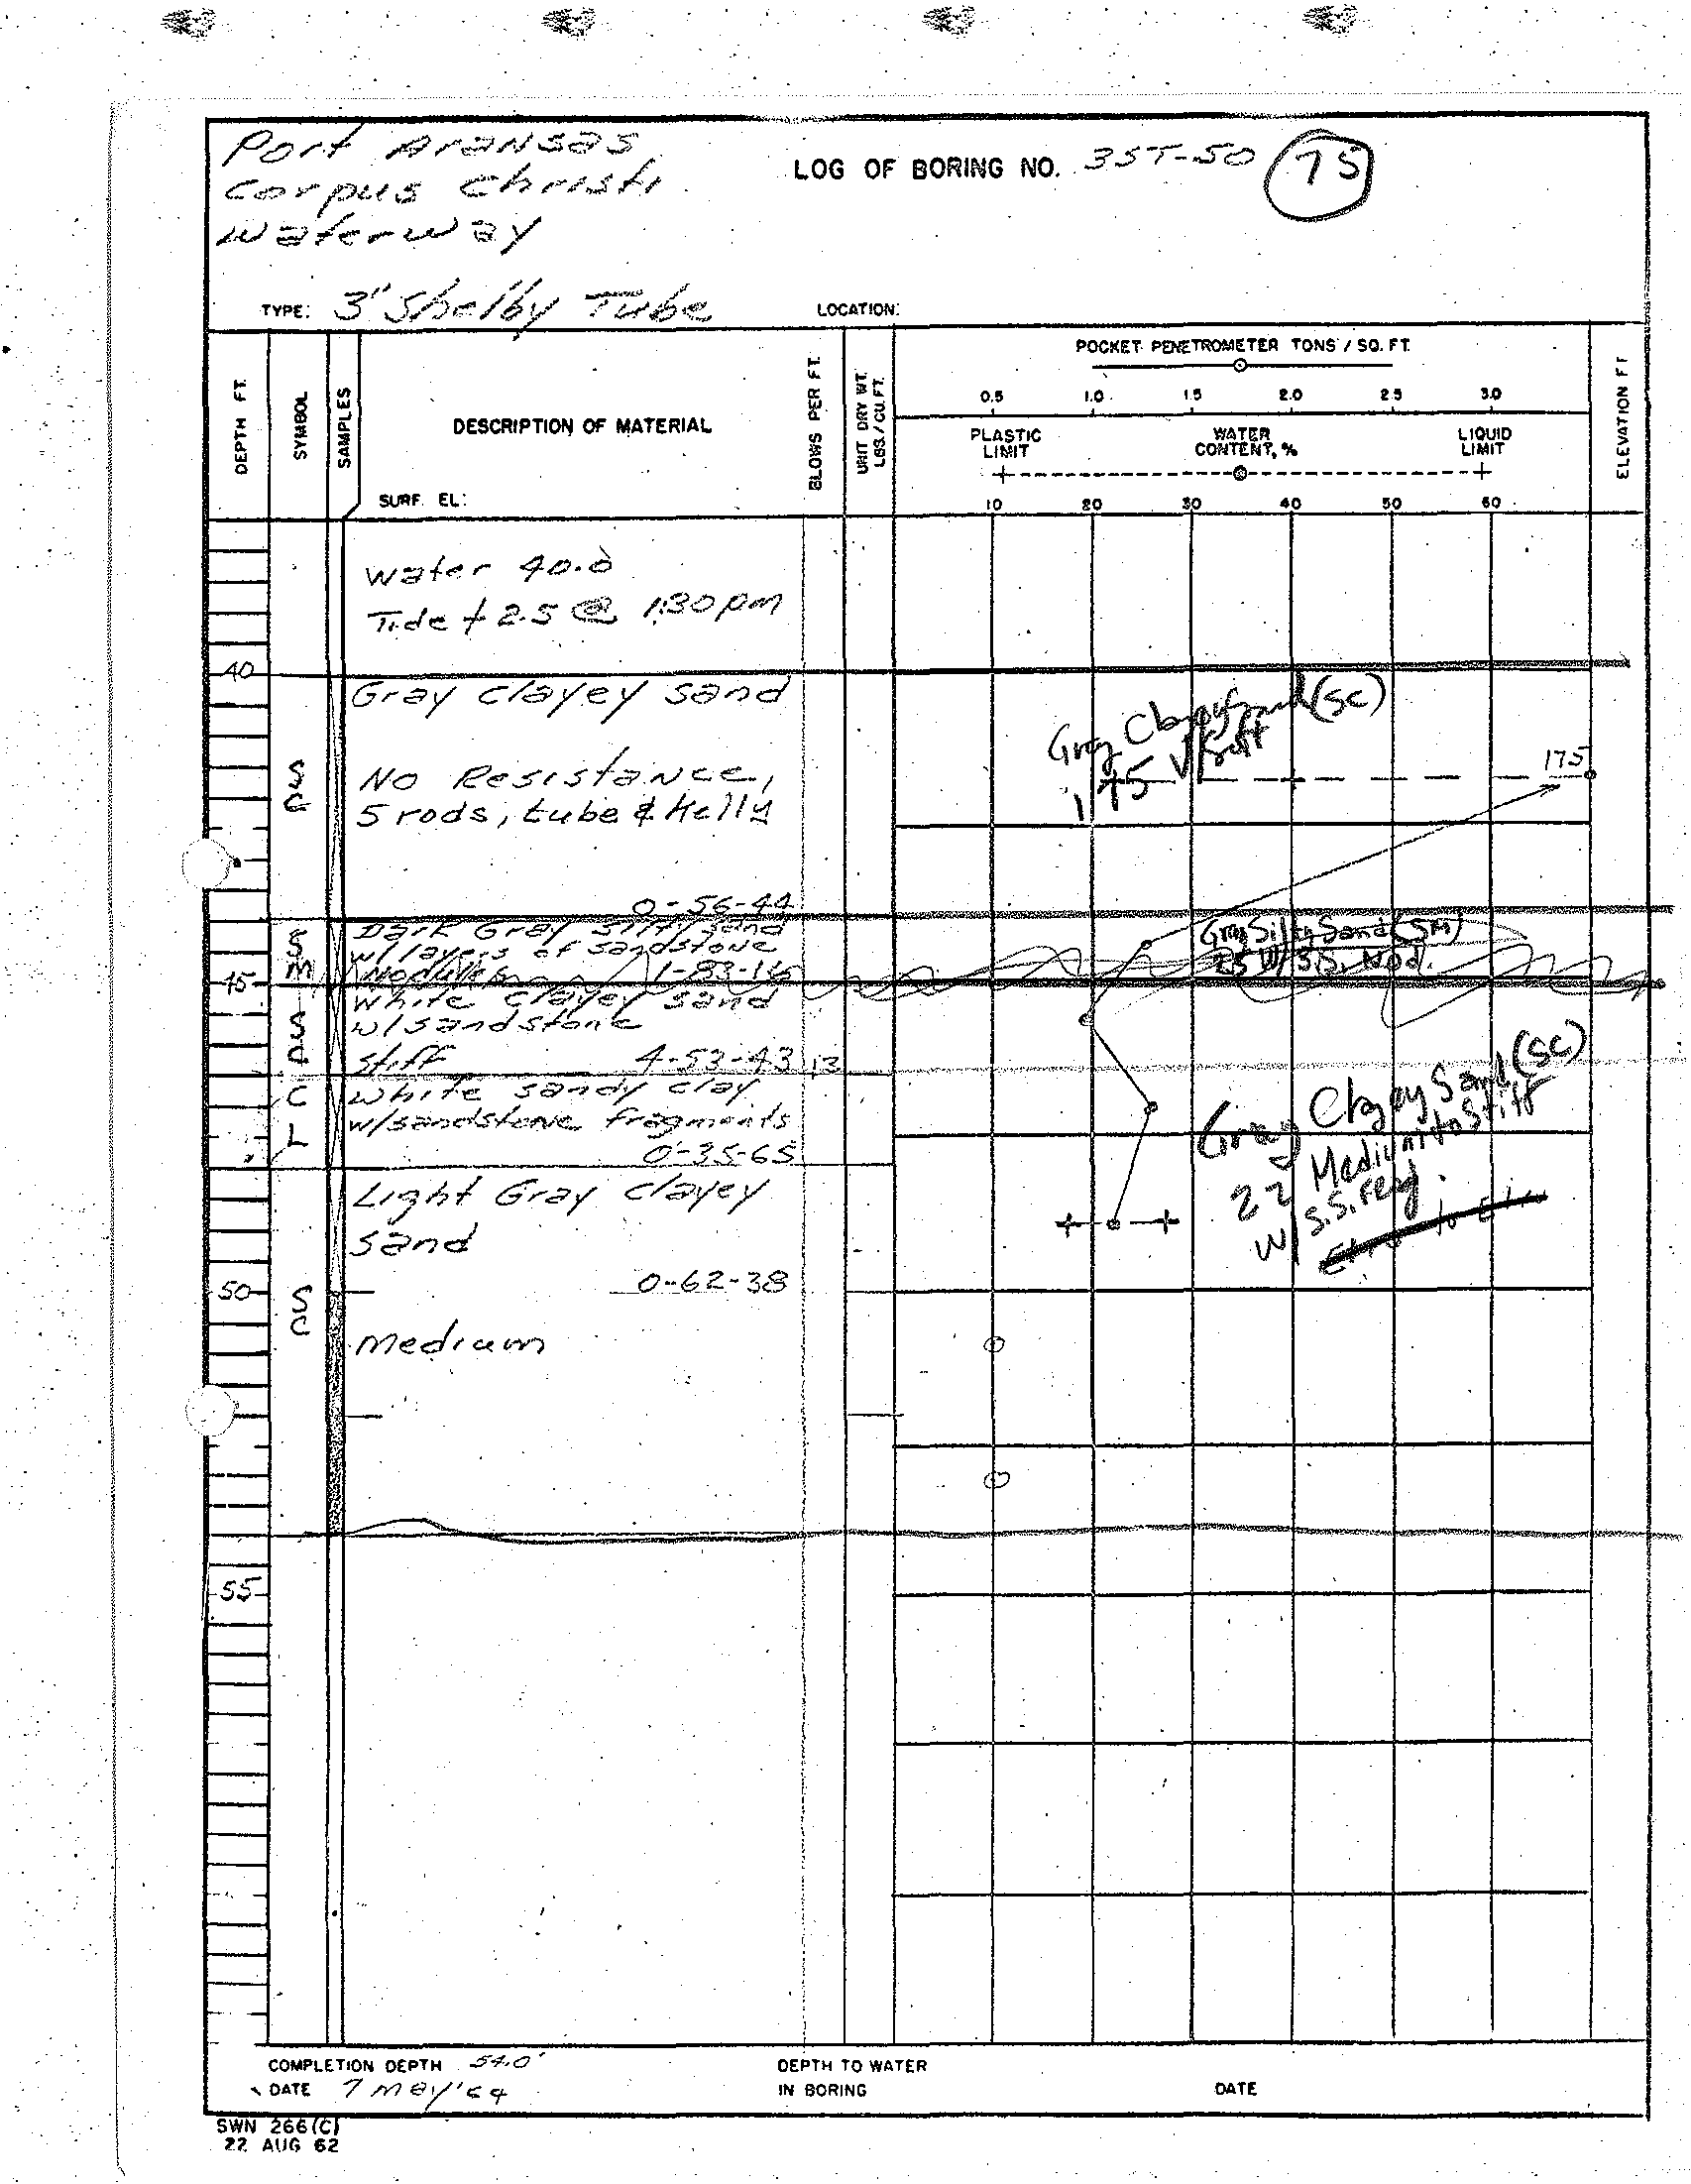 Port Aransas
Corpus Christi
Waterway
LOG OF BORING NO. 3ST-50 75
TYPE: 3" Shelby Tube
LOCATION:
DEPTH FT.
SYMBOL
SAMPLES
DESCRIPTION OF MATERIAL
SURF. EL:
BLOWS PER FT.
UNIT DRY WT. LBS./CU.FT.
POCKET PENETROMETER TONS / SQ. FT.
0.5 1.0 1.5 2.0 2.5 3.0
PLASTIC LIMIT
WATER CONTENT, %
LIQUID LIMIT
10 20 30 40 50 60
ELEVATION FT
Water 40.0
Tide + 2.5 @ 1:30 pm
40
Gray clayey sand
Gray Clayey Sand (SC)
175 V/Soft
175
SC
No Resistance,
5 rods, tube & Kelly
0-56-44
SM
Dark Gray silty sand
w/ layers of sandstone
Nodules 1-83-16
Gray Silty Sand (SM)
25 W/S.S. Nod.
45
SC
White clayey sand
w/sandstone
stiff 4-53-43 13
CL
White sandy clay
w/sandstone fragments
0-35-65
Gray Clayey Sand (SC)
22 Medium to Stiff
W/S.S. Frag.
Light Gray clayey
sand
0-62-38
50
SC
Medium
55
COMPLETION DEPTH 54.0'
DATE 7 May '64
DEPTH TO WATER
IN BORING
DATE
SWN 266(C)
22 AUG 62